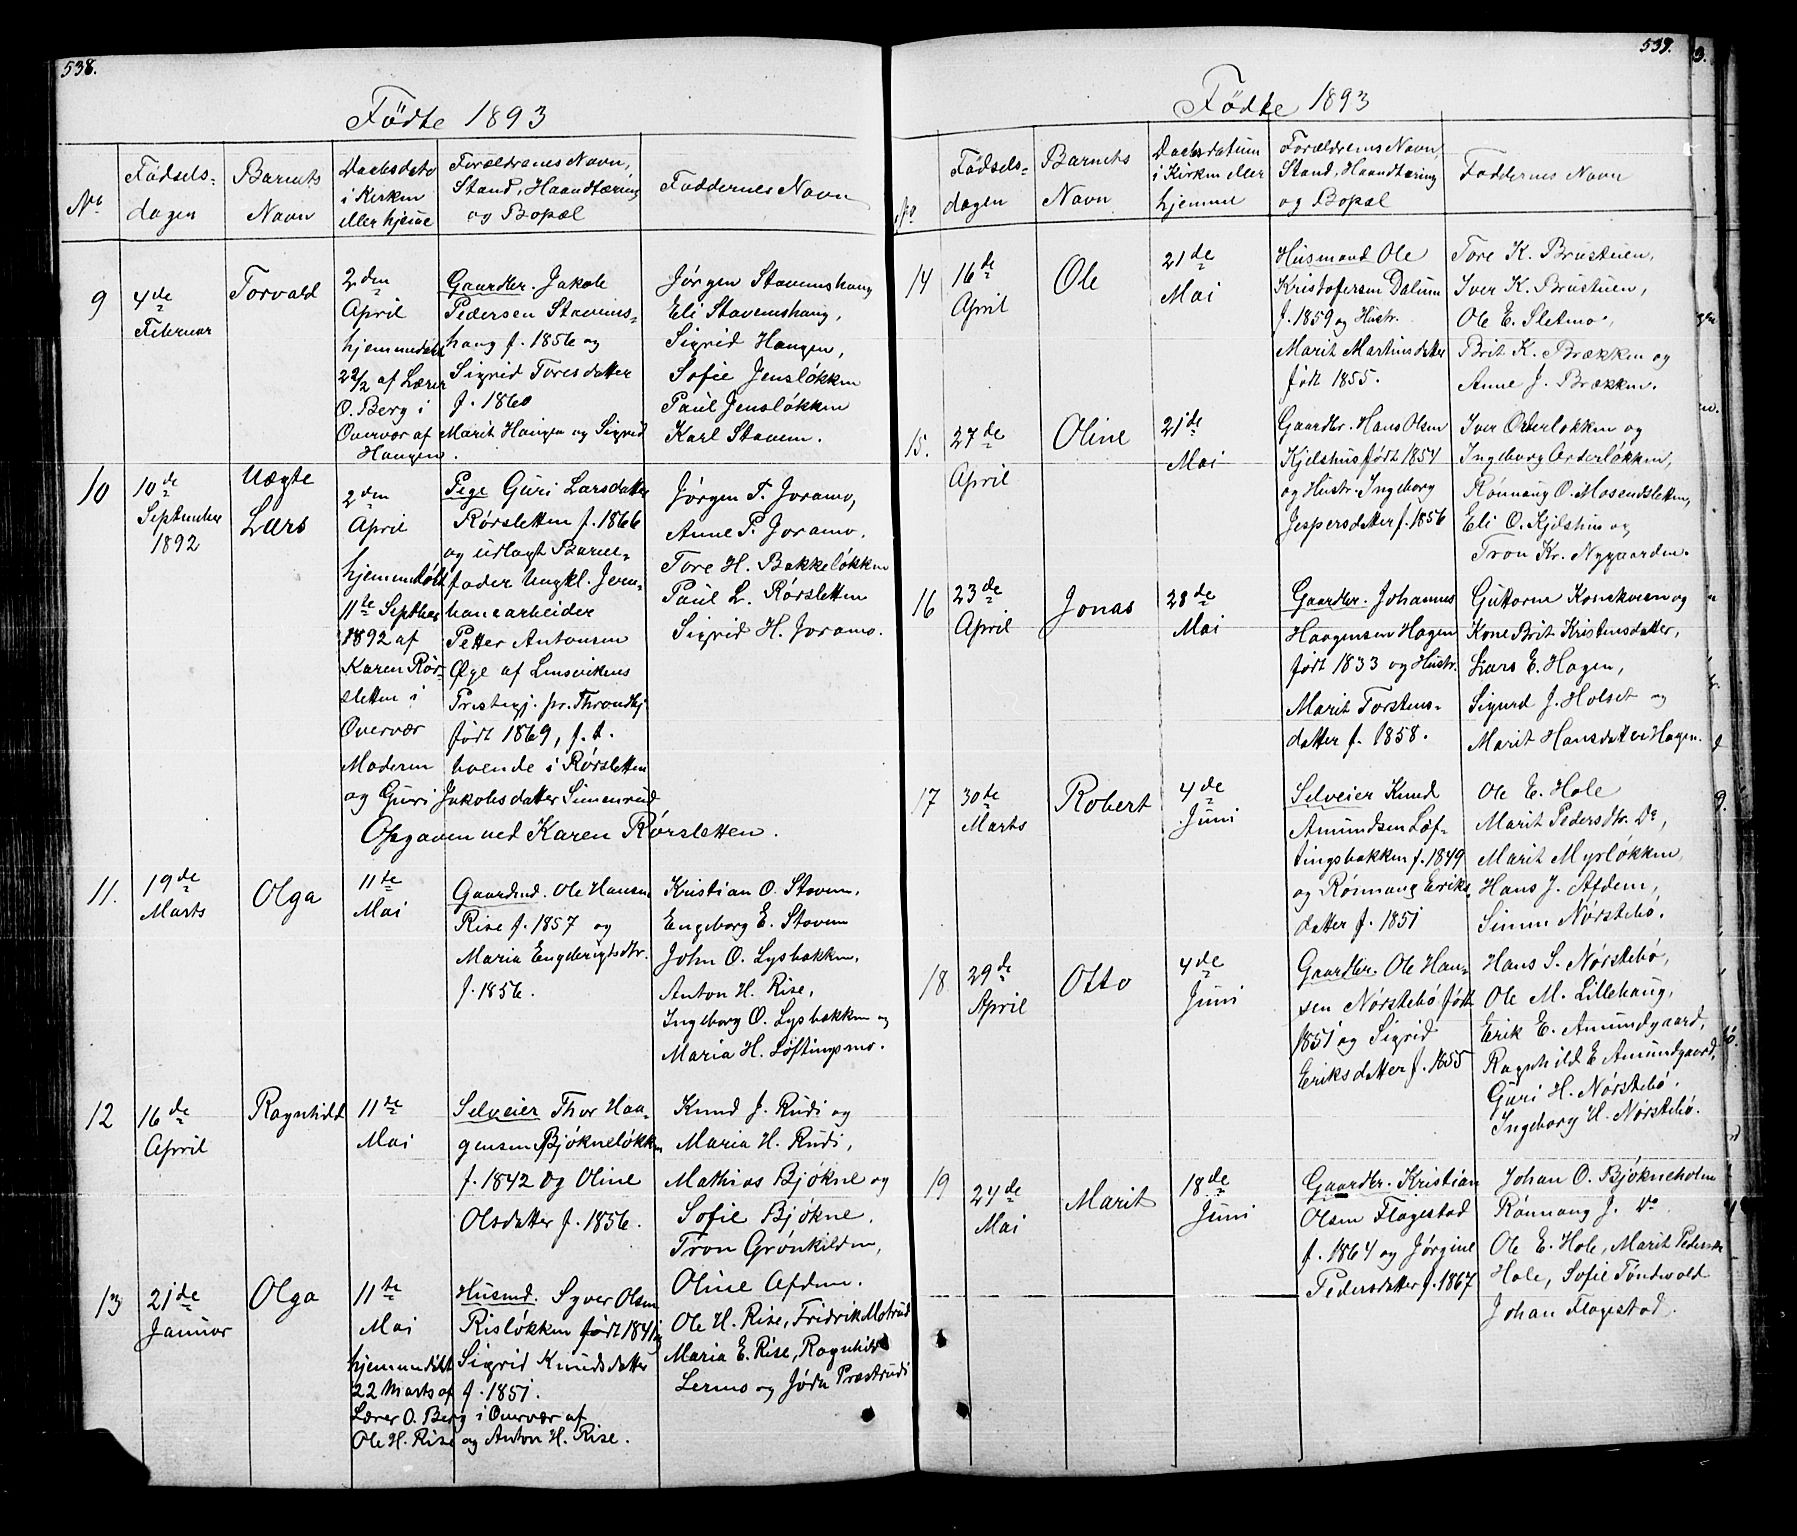 538.
Födte 1893
No
Fødsels-
dagen
Barnets
Navn
Daabsdato
i Kirken
eller hjeme
Forældrenes Navn,
Stand, Haandtæring
og Bopæl
Faddernes Navn
9
4de
Februar
Torvald
2den
April
hjemmedøbt
22/2 af Lærer
O. Berg i
Overvær af Marit Haugen og Sigrid
Haugen.
Gaardbr. Jakob
Pedersen Stavems-
haug f. 1856 og
Sigrid Toresdatter
f. 1860
Jørgen Stavemshaug
Eli Stavemshaug,
Sigrid Haugen,
Sofie Jensløkken
Paul Jensløkken
Karl Stavem.
10
10de
September
1892
Uægte
Lars
2den
April
hjemmedøbt
11te Septber
1892 af
Karen Rør-
sletten i
Overvær
Moderen
og Guri Jakobsdatter Simenrud
Opgaven ved Karen Rørsletten.
Pige Guri Larsdatter
Rørsletten f. 1866
og udlagt Barne-
fader Ungkl. Jern-
banearbeider
Petter Antonsen
Øye af Lensvikens
Prestegj. pr. Throndhj.
født 1869, f. t.
boende i Rørsletten
Jørgen T. Joramo,
Anne P. Joramo,
Tore H. Bakkeløkken
Paul L. Rørsletten
Sigrid H. Joramo.
11.
19de
Marts
Olga
11te
Mai
Gaardmd. Ole Hansen
Rise f. 1857 og
Maria Engebrigtsdtr.
f. 1856.
Kristian O. Stavem,
Engeborg E. Stavem
John O. Lysbakken,
Anton H. Rise,
Ingeborg O. Lysbakken og
Maria H. Løftingsmo.
12
16de
April
Ragnhild
11te
Mai
Selveier Thor Haa-
gensen Bjøkneløkken
f. 1842 og Oline
Olsdatter f. 1856.
Knud J. Rudi og
Maria H. Rudi,
Mathias Bjøkne og
Sofie Bjøkne.
Tron Grønkilden,
Oline Afdem.
13
21de
Januar
Olga
11te
Mai
hjemmedøbt
22 Marts af
Lærer O. Berg i Overvær af
Ole H. Rise og Anton H. Rise.
Husmd. Syver Olsen
Risløkken født 1841 og
Sigrid Knudsdatter
f. 1851.
Ole H. Rise, Fridrik Motrud
Maria E. Rise, Ragnhild
og Jøda Præstrudi
539.
Födte 1893
No
Fødsels-
dagen
Barnets
Navn
Daabsdatum
i Kirken eller
hjemme
Forældrenes Navn,
Stand, Haandtæring
og Bopæl
Faddernes Navn
14
16de
April
Ole
21de
Mai
Husmand Ole
Kristofersen Dalum
f. 1859 og Hustr.
Marit Martinsdatter
født 1855.
Tore K. Brustuen,
Iver K. Brustuen,
Ole E. Sletmo,
Brit K. Brækken og
Anne J. Brækken.
15.
27de
April
Oline
21de
Mai
Gaardbr. Hans Olsen
Kjelshus født 1854
og Hustr. Ingeborg
Jespersdatter f. 1856
Iver Orderløkken og
Ingeborg Orderløkken,
Rønnaug O. Mosendsletten,
Eli O. Kjelshus og
Tron Kr. Nygaarden.
16
23de
April
Jonas
28de
Mai
Gaardbr. Johannes
Haagensen Hagen
født 1833 og Hustr.
Marit Torstens-
datter f. 1858.
Guttorm Konekveen og
Kone Brit Kristensdatter,
Lars E. Hagen,
Sigurd J. Holset og
Marit Hansdatter Hagen.
17
30te
Marts
Robert
4de
Juni
Selveier Knud
Amundsen Løf-
tingsbakken f. 1849
og Rønnaug Eriks
datter f. 1851
Ole E. Hole
Marit Pedersdtr. Do,
Marit Myrløkken,
Hans J. Afdem,
Simen Nørstebø.
18
29de
April
Otto
4de
Juni
Gaardbr. Ole Han-
sen Nørstebø født
1851 og Sigrid
Eriksdatter f. 1855
Hans S. Nørstebø,
Ole M. Lillehaug,
Erik E. Amundgaard,
Ragnhild E Amundgaard,
Guri H. Nørstebø.
Ingeborg H. Nørstebø.
19
24de
Mai
Marit
18de
Juni
Gaardbr. Kristian
Olsen Flagestad
f. 1864 og Jørgine
Pedersdatter f. 1867
Johan O. Bjøkneholen
Rønnaug J. Do
Ole E. Hole, Marit Pedersdtr
Hole, Sofie Tøndevold
Johan Flagestad.